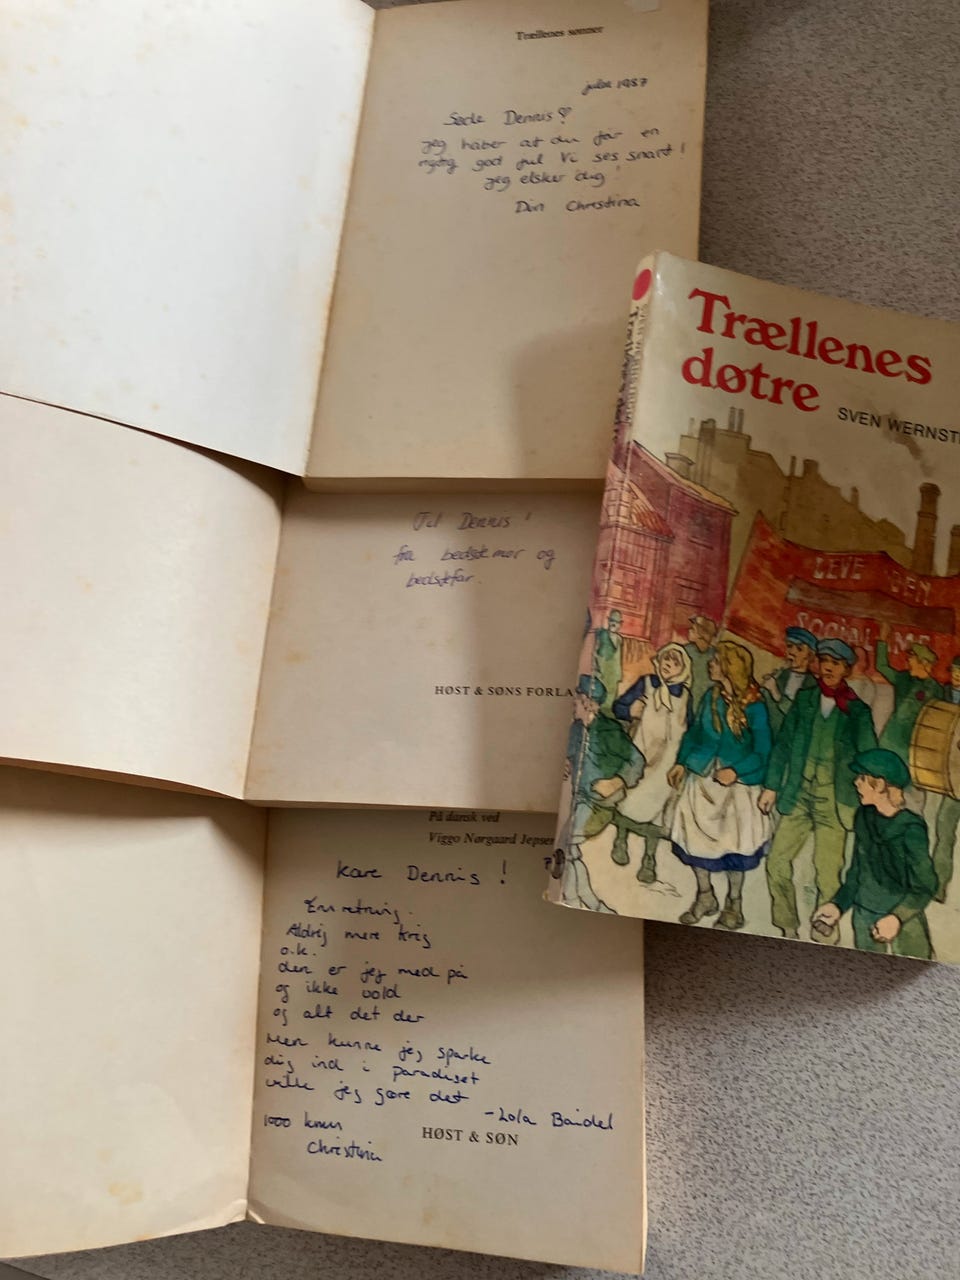 Trællenes sønner
julen 1987
Søde Dennis ♡
jeg håber at du får en
rigtig god jul Vi ses snart!
jeg elsker dig!
Din Christina
Til Dennis!
fra bedstemor og
bedstefar.
HØST & SØNS FORLA
På dansk ved
Viggo Nørgaard Jepsen
Kære Dennis!
Erindring.
Aldrig mere krig
o.k.
den er jeg med på
og ikke vold
og alt det der
Men kunne jeg sparke
dig ind i paradiset
ville jeg gøre det
-Lola Baidel
1000 knus
Christina
HØST & SØN
Trællenes
døtre
SVEN WERNST
LEVE DEN
SOCIAL